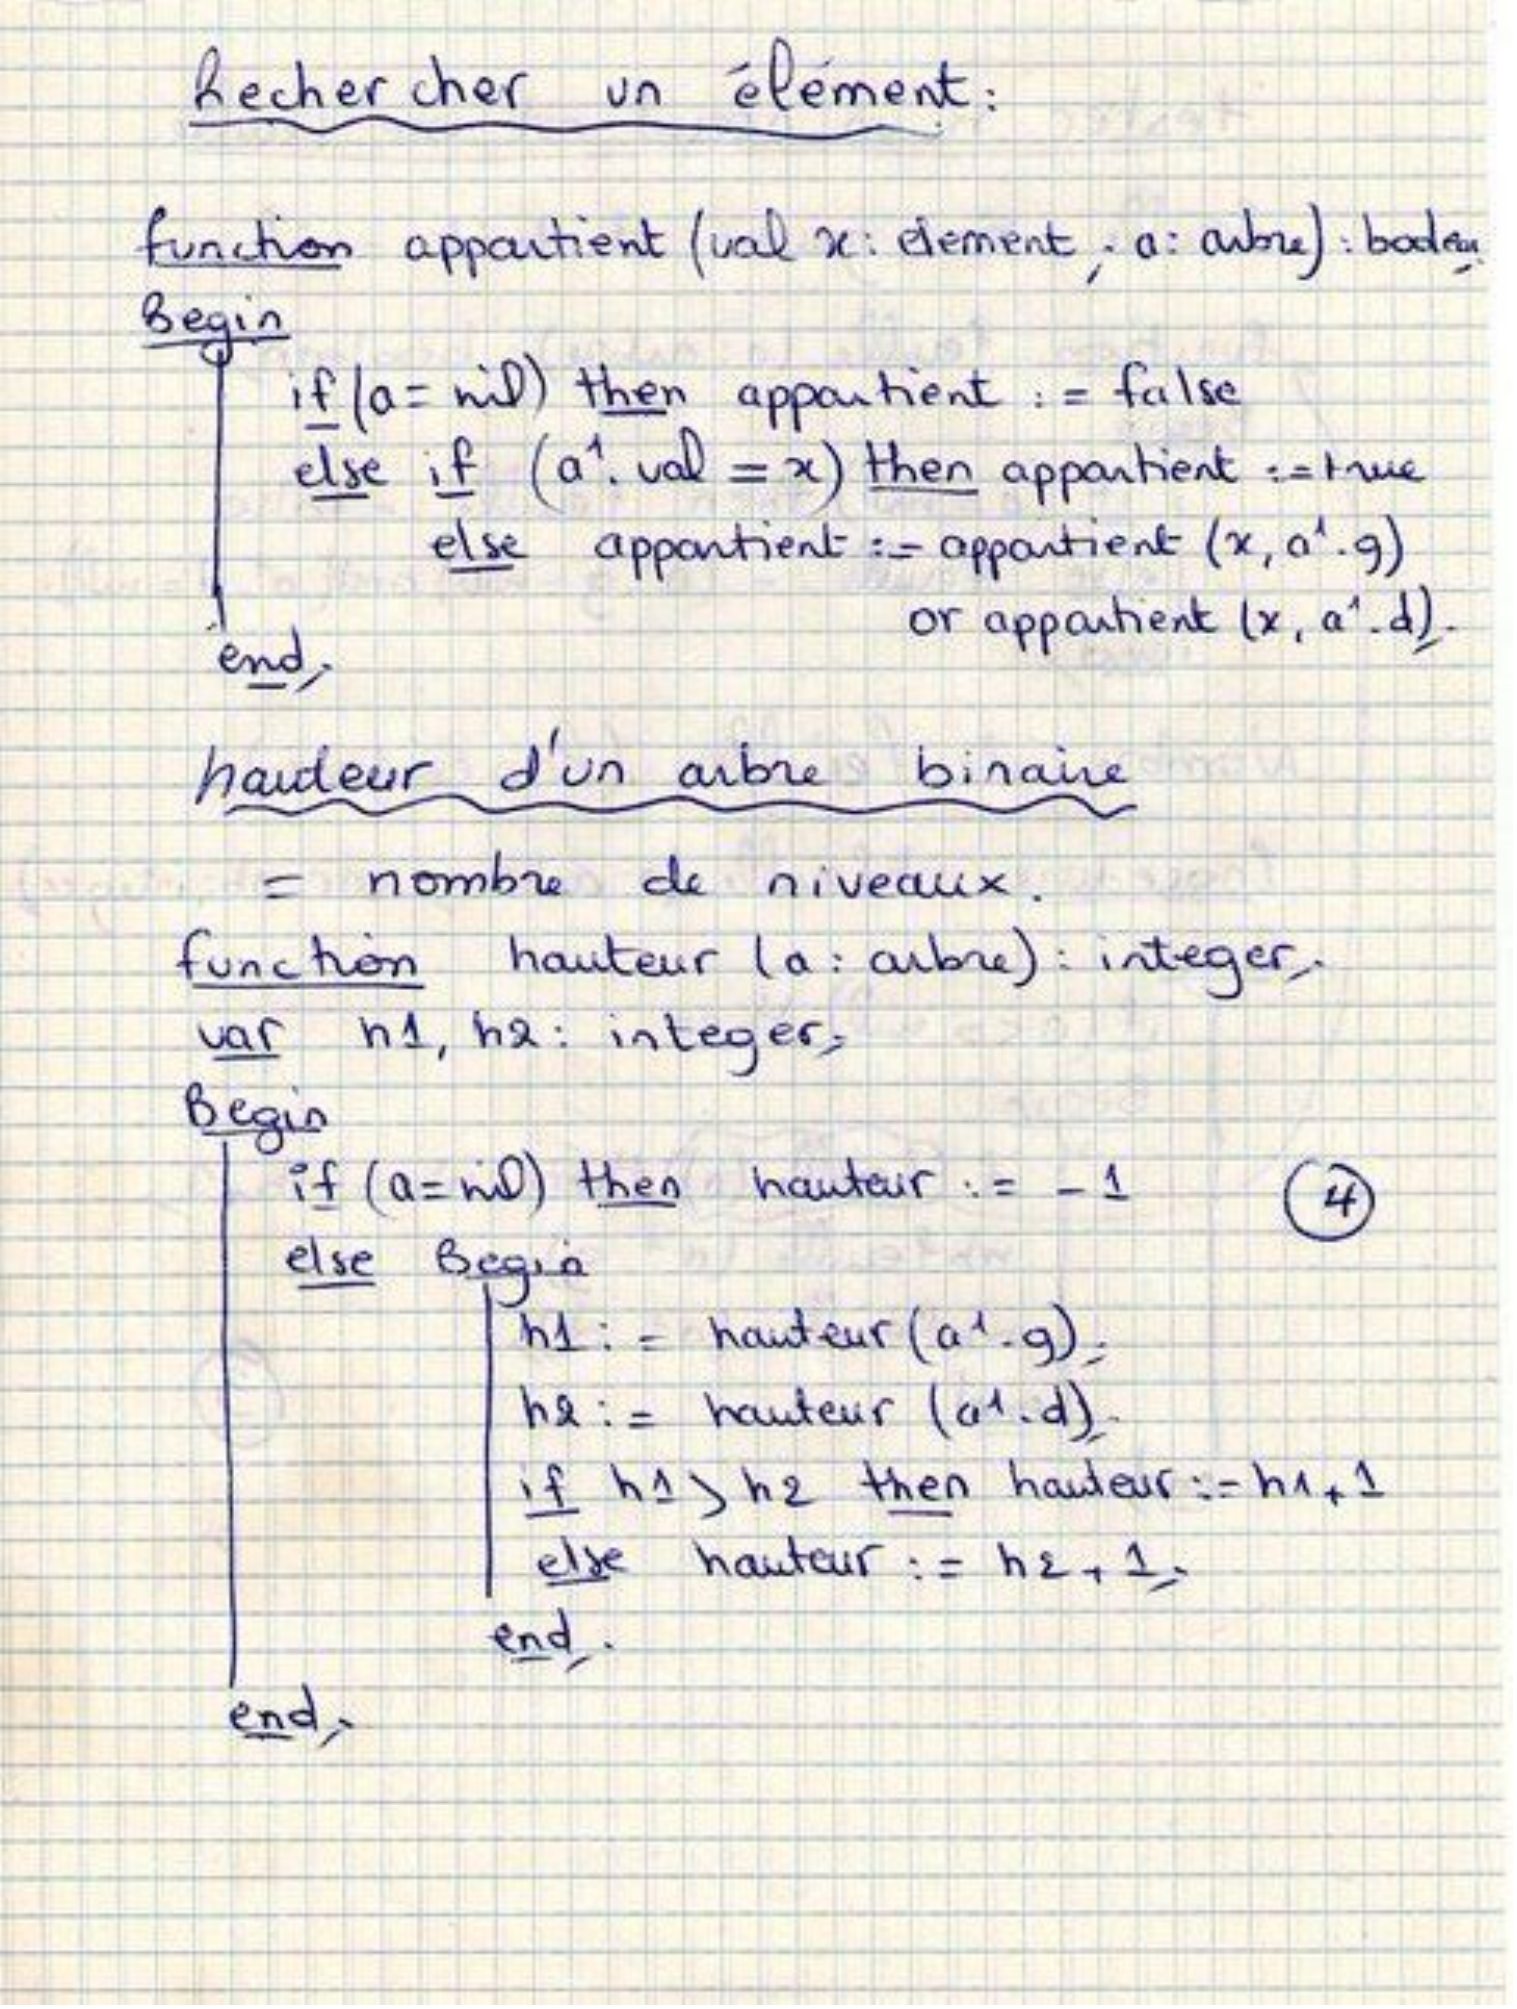 Rechercher un élément:
function appartient (val x: element; a: arbre): boolean;
Begin
if (a = nil) then appartient := false
else if (a↑.val = x) then appartient := true
else appartient := appartient (x, a↑.g)
or appartient (x, a↑.d);
end;
hauteur d'un arbre binaire
= nombre de niveaux.
function hauteur (a: arbre): integer;
var h1, h2: integer;
Begin
if (a=nil) then hauteur := -1
4
else Begin
h1 := hauteur (a↑.g);
h2 := hauteur (a↑.d);
if h1 > h2 then hauteur := h1+1
else hauteur := h2+1;
end;
end;